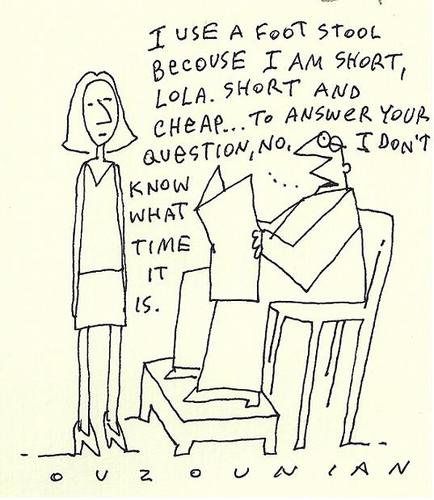 I USE A FOOT STOOL
BECOUSE I AM SHORT,
LOLA. SHORT AND
CHEAP... TO ANSWER YOUR
QUESTION, NO. I DON'T
KNOW
WHAT
TIME
IT
IS.
OUZOUNIAN